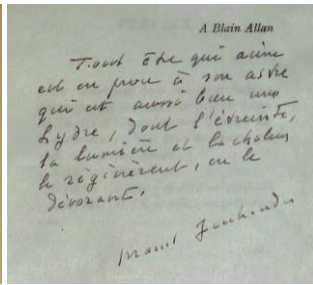 A Blain Allan
Tout être qui aime
est en proie à son astre
qui est aussi bien une
hydre, dont l'étreinte,
la lumière et la chaleur
le régénèrent, en le
dévorant.
Marcel Jouhandeau